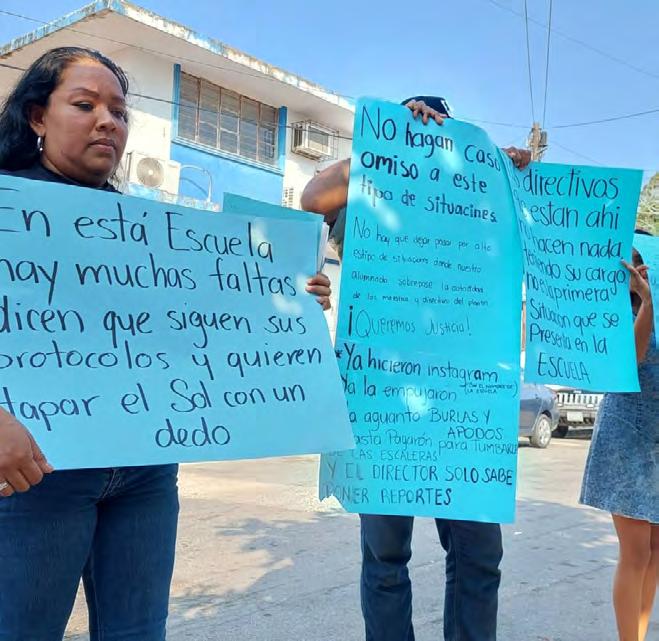 En está Escuela
hay muchas faltas
dicen que siguen sus
protocolos y quieren
tapar el Sol con un
dedo
No hagan caso
omiso a este
tipo de situacines.
No hay que dejar pasar por alto
estipo de situaciones donde nuestro
alumnado sobrepase la autoridad
de los maestros y directivo del plantel
¡Queremos Justicia!
*Ya hicieron instagram
(CON EL NOMBRE DE
LA ESCUELA
Ya la empujaron
aguanto BURLAS Y
APODOS
hasta Pagarón para TUMBARLA
DE LAS ESCALERAS
Y EL DIRECTOR SOLO SABE
PONER REPORTES
directivos
estan ahi
hacen nada
teniendo su cargo
no es la primera
Situación que se
Presenta en la
ESCUELA